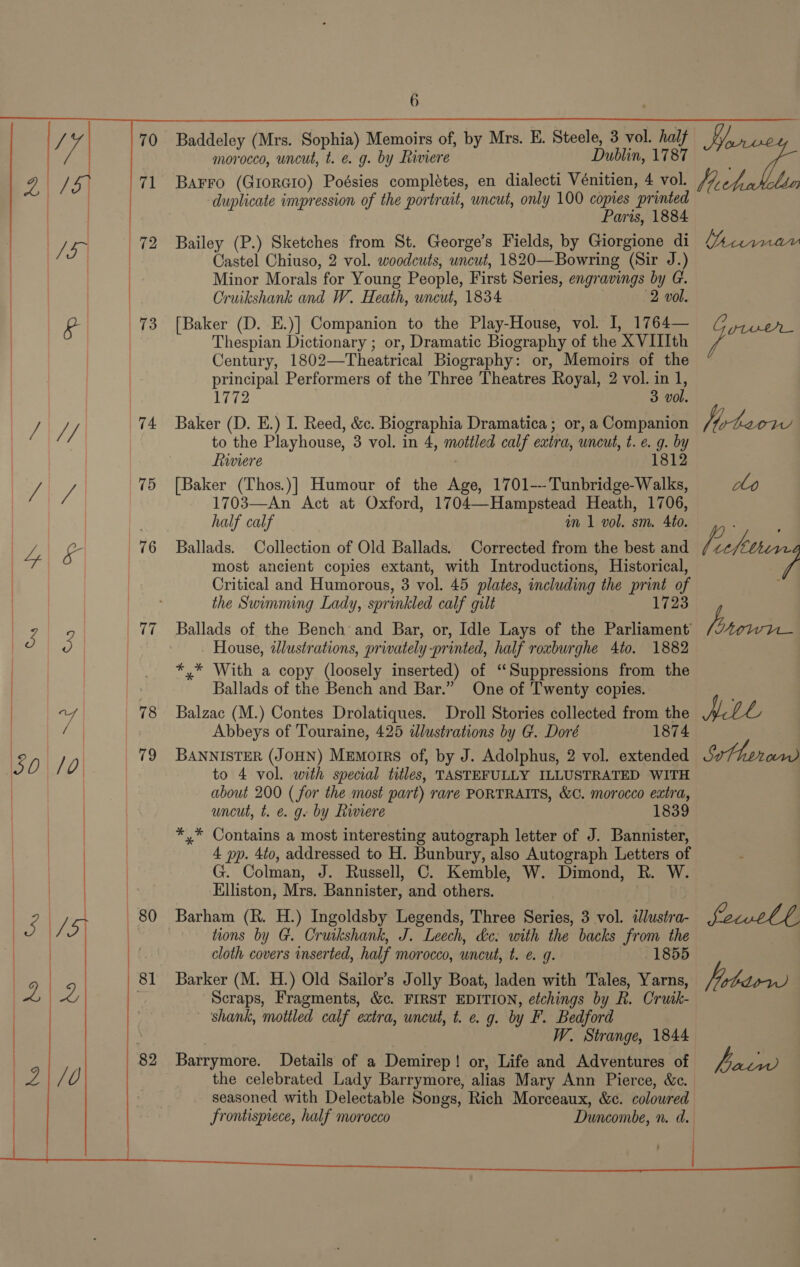 6
17 70 Baddeley (Mrs. Sophia) Memoirs of, by Mrs. E. Steele, 3 vol. half Harvey
morocco, uncut, t. e. g. by Riviere Dublin, 1787
2 15 71 BAFFO (GIORGIO) Poésies complètes, en dialecti Vénitien, 4 vol.
duplicate impression of the portrait, uncut, only 100 copies printed
Paris, 1884
15 72 Bailey (P.) Sketches from St. George's Fields, by Giorgione di
Castel Chiuso, 2 vol. woodcuts, uncut, 1820—Bowring (Sir J.)
Minor Morals for Young People, First Series, engravings by G.
Cruikshank and W. Heath, uncut, 1834 2 vol.
8 73 [Baker (D. E.)] Companion to the Play-House, vol. I, 1764—
Thespian Dictionary ; or, Dramatic Biography of the XVIIIth
Century, 1802—Theatrical Biography: or, Memoirs of the
principal Performers of the Three Theatres Royal, 2 vol. in 1,
1772 3 vol.
1 11 74 Baker (D. E.) I. Reed, &c. Biographia Dramatica ; or, a Companion Hobson
to the Playhouse, 3 vol. in 4, mottled calf extra, uncut, t. e. g. by
Riviere 1812
1 1 75 [Baker (Thos.)] Humour of the Age, 1701—Tunbridge-Walks, do
1703—An Act at Oxford, 1704—Hampstead Heath, 1706,
half calf in 1 vol. sm. 4to.
4 8 76 Ballads. Collection of Old Ballads. Corrected from the best and Pickering
most ancient copies extant, with Introductions, Historical,
Critical and Humorous, 3 vol. 45 plates, including the print of
the Swimming Lady, sprinkled calf gilt 1723
3 3 77 Ballads of the Bench and Bar, or, Idle Lays of the Parliament Brown
House, illustrations, privately printed, half roxburghe 4to. 1882
*** With a copy (loosely inserted) of “Suppressions from the
Ballads of the Bench and Bar.” One of Twenty copies.
7 78 Balzac (M.) Contes Drolatiques. Droll Stories collected from the Hill
Abbeys of Touraine, 425 illustrations by G. Doré 1874
30 10 79 BANNISTER (JOHN) MEMOIRS of, by J. Adolphus, 2 vol. extended Sotheran
to 4 vol. with special titles, TASTEFULLY ILLUSTRATED WITH
about 200 (for the most part) rare PORTRAITS, &C. morocco extra,
uncut, t. e. g. by Riviere 1839
*** Contains a most interesting autograph letter of J. Bannister,
4 pp. 4to, addressed to H. Bunbury, also Autograph Letters of
G. Colman, J. Russell, C. Kemble, W. Dimond, R. W.
Elliston, Mrs. Bannister, and others.
3 15 80 Barham (R. H.) Ingoldsby Legends, Three Series, 3 vol. illustra- Sewell
tions by G. Cruikshank, J. Leech, &c. with the backs from the
cloth covers inserted, half morocco, uncut, t. e. g. 1855
2 2 81 Barker (M. H.) Old Sailor's Jolly Boat, laden with Tales, Yarns, Hobson
Scraps, Fragments, &c. FIRST EDITION, etchings by R. Cruik-
shank, mottled calf extra, uncut, t. e. g. by F. Bedford
W. Strange, 1844
2 10 82 Barrymore. Details of a Demirep! or, Life and Adventures of Bain
the celebrated Lady Barrymore, alias Mary Ann Pierce, &c.
seasoned with Delectable Songs, Rich Morceaux, &c. coloured
frontispiece, half morocco Duncombe, n. d.